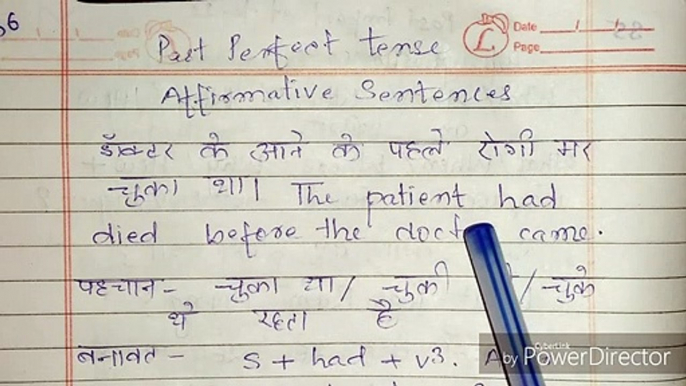 36
Date / /
Page
L
Past Perfect tense
Affirmative Sentences
डॉक्टर के आने के पहले रोगी मर
चुका था। The patient had
died before the came.
पहचान - चुका था / चुकी / चुके
थे रहता है
बनावट - S + had + v3.
CyberLink
by PowerDirector